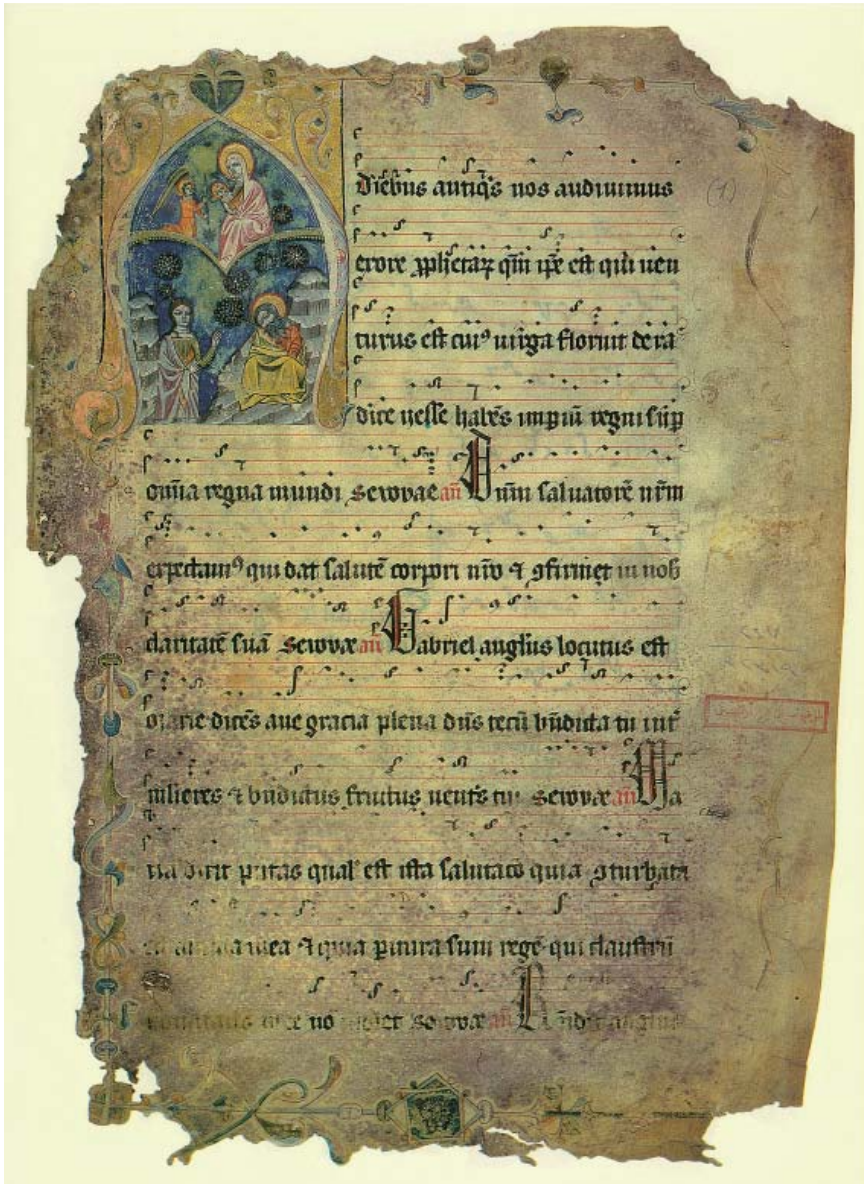 diebus antiqͥs nos audiuimus
erore ꝓphetaꝝ qm̄ ip̄e est qui uen
turus est cuiꝰ uirga floruit de ra
dice yesse habēs impiū regni sup
om̄ia regna mundi seuouae an̄ Dn̄m saluatorē nr̄m
expectamꝰ qui dat salutē corpori nr̄o ⁊ ꝯfirmet in nob
claritatē suā seuouae an̄ Gabriel anglus locutus est
marie dicēs aue gracia plena dn̄s tecū bn̄dicta tu int̄
mlieres ⁊ bn̄dictus fructus uent̄s tui seuouae an̄ Ma
ria dixit putas qual' est ista salutaco quia ꝯturbata
mea ⁊ quia paritura sum regē qui claustrū
no seuouae an̄
(1)